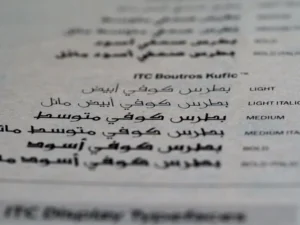 بطرس صحفي أسود
بطرس صحفي أسود مائل
ITC Boutros Kufic™
بطرس كوفي أبيض LIGHT
بطرس كوفي أبيض مائل LIGHT ITALIC
بطرس كوفي متوسط MEDIUM
بطرس كوفي متوسط مائل MEDIUM ITA
بطرس كوفي أسود BOLD
بطرس كوفي أسود مائل BOLD ITALIC
ITC Display Typefaces